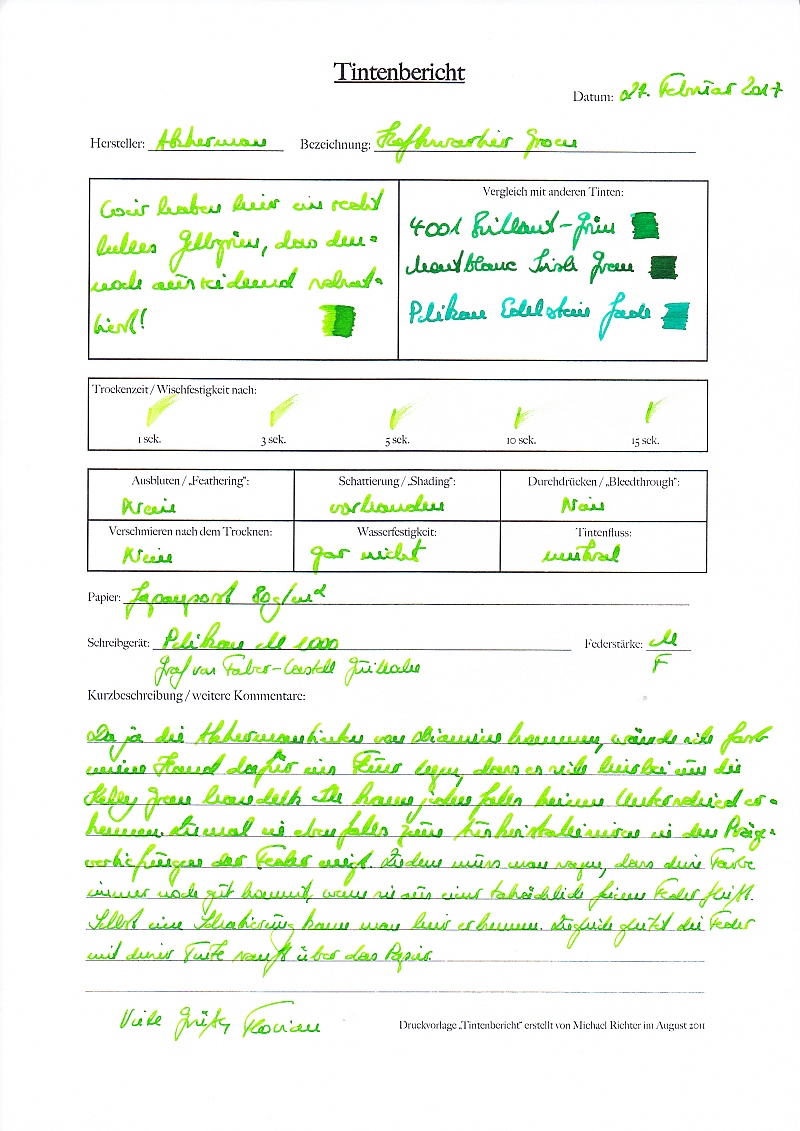 Tintenbericht
Datum: 27. Februar 2017
Hersteller: Akkerman Bezeichnung: Hofkwartier Groen
Wir haben hier ein recht
helles Gelbgrün, das den-
noch ausreichend schat-
tiert!
Vergleich mit anderen Tinten:
4001 Brillant-Grün
Montblanc Irish Green
Pelikan Edelstein Jade
Trockenzeit / Wischfestigkeit nach:
1 sek. 3 sek. 5 sek. 10 sek. 15 sek.
Ausbluten / „Feathering“: Schattierung / „Shading“: Durchdrücken / „Bleedthrough“:
Nein vorhanden Nein
Verschmieren nach dem Trocknen: Wasserfestigkeit: Tintenfluss:
Nein gar nicht neutral
Papier: Japanpost 80g/m²
Schreibgerät: Pelikan M 1000 Federstärke: M
Graf von Faber-Castell Guilloche F
Kurzbeschreibung / weitere Kommentare:
Da ja die Akkermantinten von Diamine kommen, würde ich fast
meine Hand dafür ins Feuer legen, dass es sich hierbei um die
Kelly Green handelt. Ich kann jedenfalls keinen Unterschied er-
kennen. Zumal sie ebenfalls zum in den Präge-
vertiefungen der Feder neigt. Zudem muss man sagen, dass diese Farbe
immer noch gut kommt, wenn sie aus einer tatsächlich feinen Feder fließt.
Selbst eine Schattierung kann man hier erkennen. Zugleich gleitet die Feder
mit dieser Tinte sanft über das Papier.
Viele Grüße Florian
Druckvorlage „Tintenbericht“ erstellt von Michael Richter im August 2011